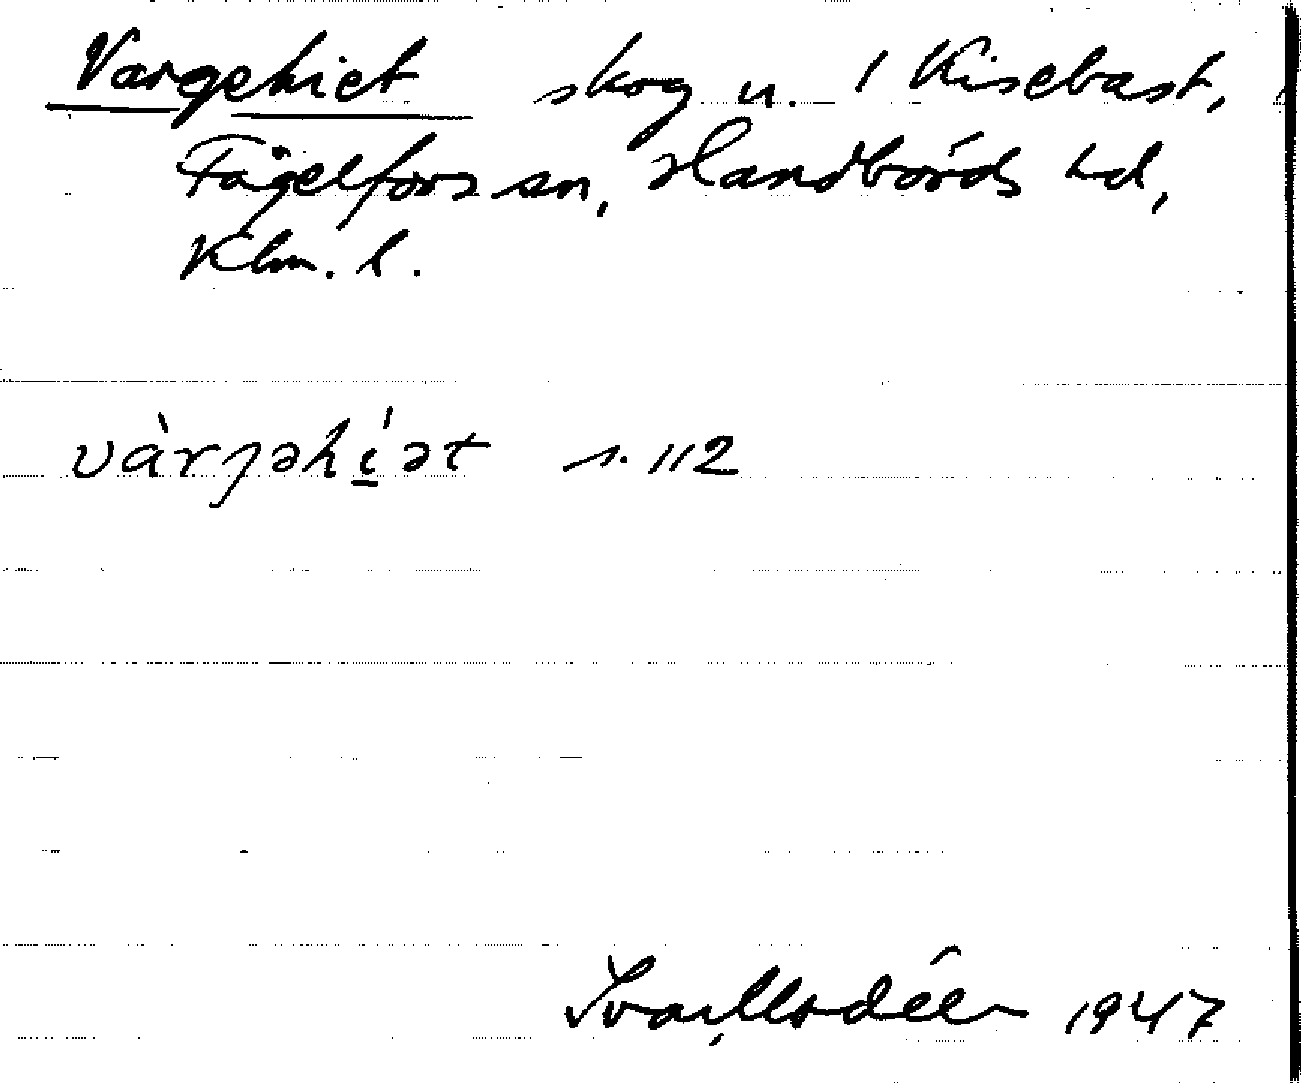 Vargehiet skog u. / Kisebast,
Fågelfors sn, Handbörds hd,
Klm. l.
vàrgəhíət s. 112
Ivar Modéer 1947